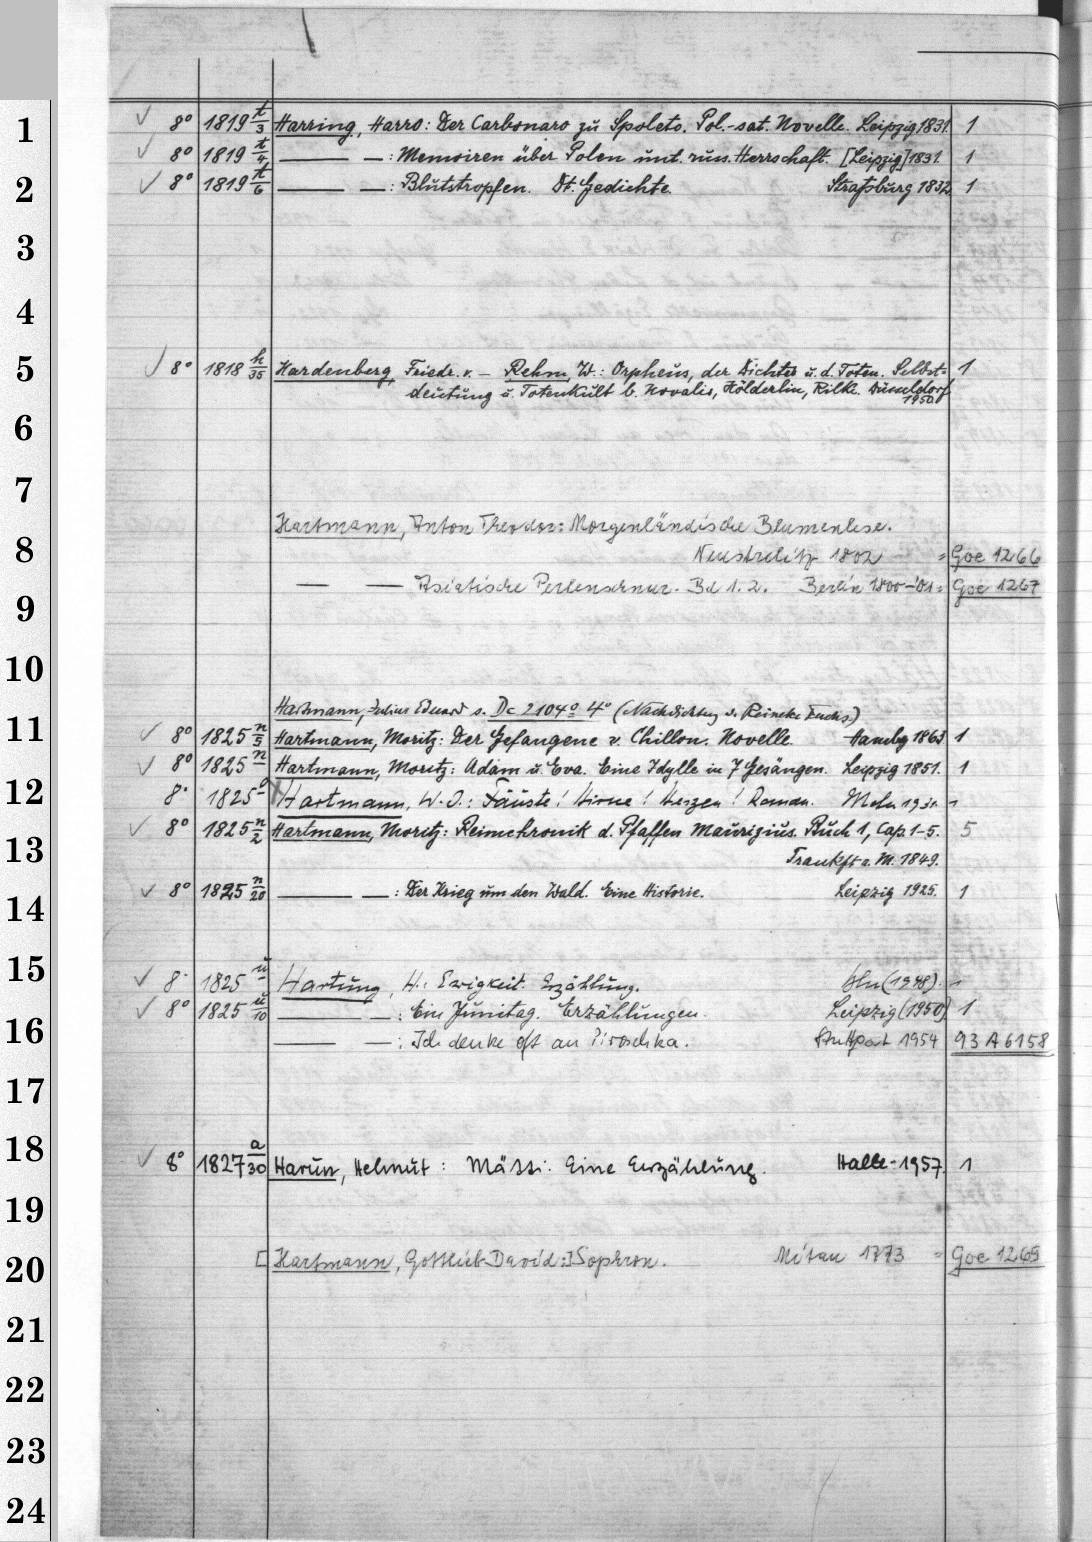 1
✓ 8° 1819 t/3 Harring, Harro: Der Carbonaro zu Spoleto. Pol.-sat. Novelle. Leipzig 1831. 1
✓ 8° 1819 t/4 —— —: Memoiren über Polen unt. russ. Herrschaft. [Leipzig] 1831. 1
2
✓ 8° 1819 t/6 —— —: Blutstropfen. Dt. Gedichte. Straßburg 1832 1
3
4
5
✓ 8° 1818 h/35 Hardenberg, Friedr. v. – Rehm, W.: Orpheus, der Dichter u. d. Toten. Selbst-
deutung u. Totenkult b. Novalis, Hölderlin, Rilke. Düsseldorf
1950. 1
6
7
Hartmann, Anton Theodor: Morgenländische Blumenlese.
8
Neustrelitz 1802 = Goe 1266
—— —— Asiatische Perlenschnur. Bd 1. 2. Berlin 1800-'01 = Goe 1267
9
10
Hartmann, Julius Eduard s. Dc 2104° 4° (Nachdichtung v. Reineke Fuchs)
11
✓ 8° 1825 n/5 Hartmann, Moritz: Der Gefangene v. Chillon. Novelle. Hambg 1863 1
✓ 8° 1825 n Hartmann, Moritz: Adam u. Eva. Eine Idylle in 7 Gesängen. Leipzig 1851. 1
12
8° 1825 Hartmann, W. J.: Fäuste! Hirne! Herzen! Roman. 1931. 1
✓ 8° 1825 n/2 Hartmann, Moritz: Reimchronik d. Pfaffen Maurizius. Buch 1, Cap. 1-5. 5
13
Frankft a. M. 1849.
✓ 8° 1825 n/20 —— —: Der Krieg um den Wald. Eine Historie. Leipzig 1925. 1
14
15
✓ 8° 1825 u Hartung, H.: Ewigkeit. Erzählung. Bln (1948). 1
✓ 8° 1825 u/10 —— —: Ein Junitag. Erzählungen. Leipzig (1950) 1
16
—— —: Ich denke oft an Piroschka. Stuttgart 1954 93 A 6158
17
18
✓ 8° 1827 a/30 Harun, Helmut: Mätti. Eine Erzählung. Halle 1957. 1
19
20
[Hartmann, Gottlieb David:] Sophron. Mitau 1773 = Goe 1269
21
22
23
24